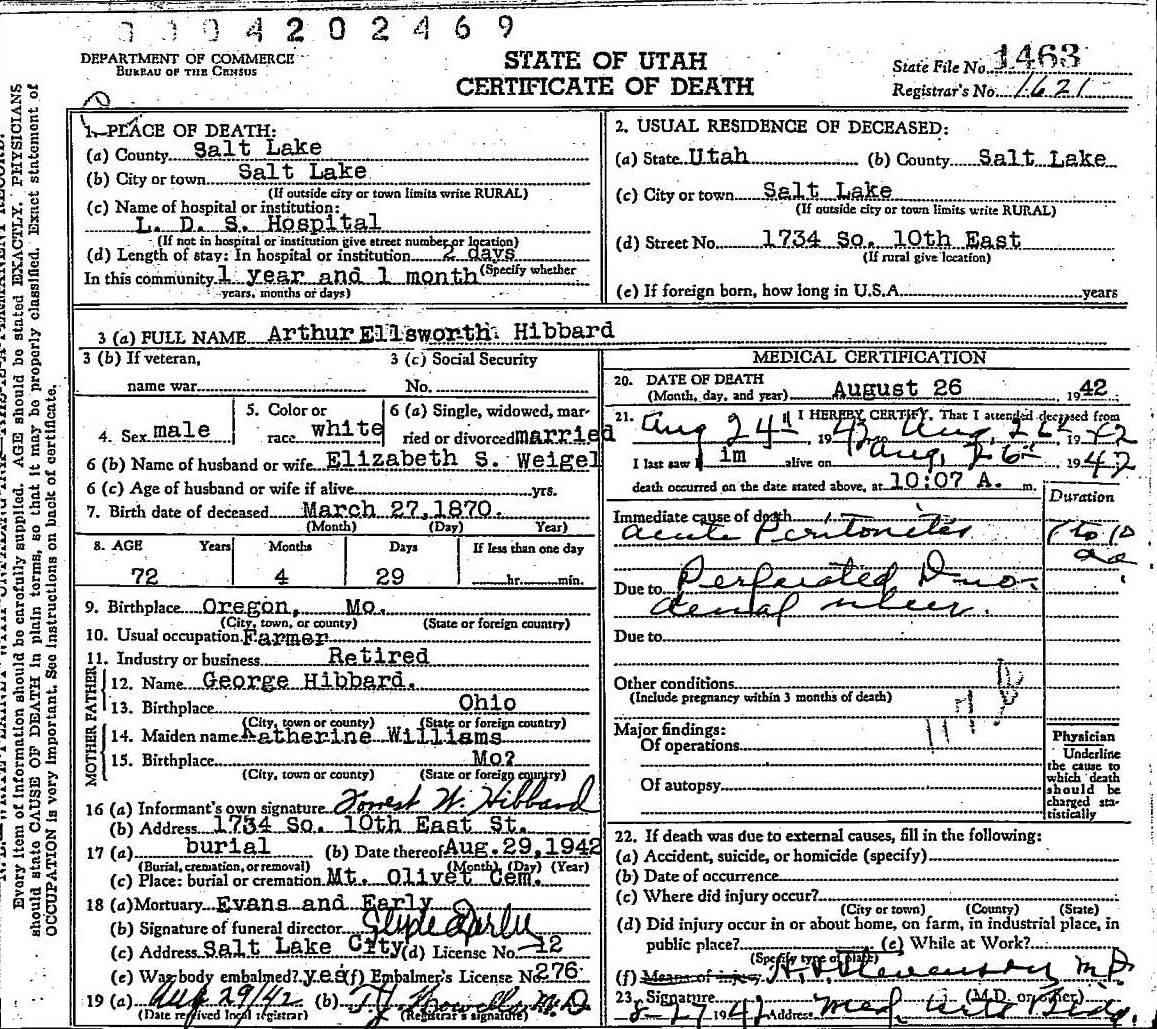 0004202469
DEPARTMENT OF COMMERCE
BUREAU OF THE CENSUS
STATE OF UTAH
CERTIFICATE OF DEATH
State File No. 1463
Registrar's No. 1621
Every item of information should be carefully supplied. AGE should be stated EXACTLY. PHYSICIANS
should state CAUSE OF DEATH in plain terms, so that it may be properly classified. Exact statement of
OCCUPATION is very important. See instructions on back of certificate.
1. PLACE OF DEATH:
(a) County Salt Lake
(b) City or town Salt Lake
(If outside city or town limits write RURAL)
(c) Name of hospital or institution:
L. D. S. Hospital
(If not in hospital or institution give street number or location)
(d) Length of stay: In hospital or institution 2 days
(Specify whether
In this community 1 year and 1 month
years, months or days)
2. USUAL RESIDENCE OF DECEASED:
(a) State Utah (b) County Salt Lake
(c) City or town Salt Lake
(If outside city or town limits write RURAL)
(d) Street No. 1734 So. 10th East
(If rural give location)
(e) If foreign born, how long in U.S.A. years
3 (a) FULL NAME Arthur Ellsworth Hibbard
3 (b) If veteran,
name war
3 (c) Social Security
No.
4. Sex male
5. Color or
race white
6 (a) Single, widowed, mar-
ried or divorced married
6 (b) Name of husband or wife Elizabeth S. Weigel
6 (c) Age of husband or wife if alive yrs.
7. Birth date of deceased March 27, 1870.
(Month) (Day) Year)
8. AGE Years Months Days If less than one day
72 4 29 hr. min.
9. Birthplace Oregon, Mo.
(City, town, or county) (State or foreign country)
10. Usual occupation Farmer
11. Industry or business Retired
FATHER
12. Name George Hibbard.
13. Birthplace Ohio
(City, town or county) (State or foreign country)
MOTHER
14. Maiden name Katherine Williams
15. Birthplace Mo?
(City, town or county) (State or foreign country)
16 (a) Informant's own signature Forrest W. Hibbard
(b) Address 1734 So. 10th East St.
17 (a) burial (b) Date thereof Aug. 29, 1942
(Burial, cremation, or removal) (Month) (Day) (Year)
(c) Place: burial or cremation Mt. Olivet Cem.
18 (a) Mortuary Evans and Early
(b) Signature of funeral director Clyde Early
(c) Address Salt Lake City (d) License No. 12
(e) Was body embalmed? yes (f) Embalmer's License No 276
19 (a) Aug 29/42 (b) T.J. Howells M.D
(Date received local registrar) (Registrar's signature)
MEDICAL CERTIFICATION
20. DATE OF DEATH
(Month, day, and year) August 26 1942
21. I HEREBY CERTIFY, That I attended deceased from
Aug 24th 1942 to Aug. 26th 1942
I last saw h im alive on Aug, 26th 1942
death occurred on the date stated above, at 10:07 A. m.
Duration
Immediate cause of death
Acute Peritonitis
Due to Perforated Duo-
denal ulcer.
Due to
Other conditions
(Include pregnancy within 3 months of death)
Major findings:
Of operations
Of autopsy
Physician
Underline
the cause to
which death
should be
charged sta-
tistically
22. If death was due to external causes, fill in the following:
(a) Accident, suicide, or homicide (specify)
(b) Date of occurrence
(c) Where did injury occur?
(City or town) (County) (State)
(d) Did injury occur in or about home, on farm, in industrial place, in
public place? (e) While at Work?
(Specify type of place)
(f) Means of injury Stevenson M.D.
23. Signature (M.D. or other)
8-27 1942 Address Med. Arts Bldg.